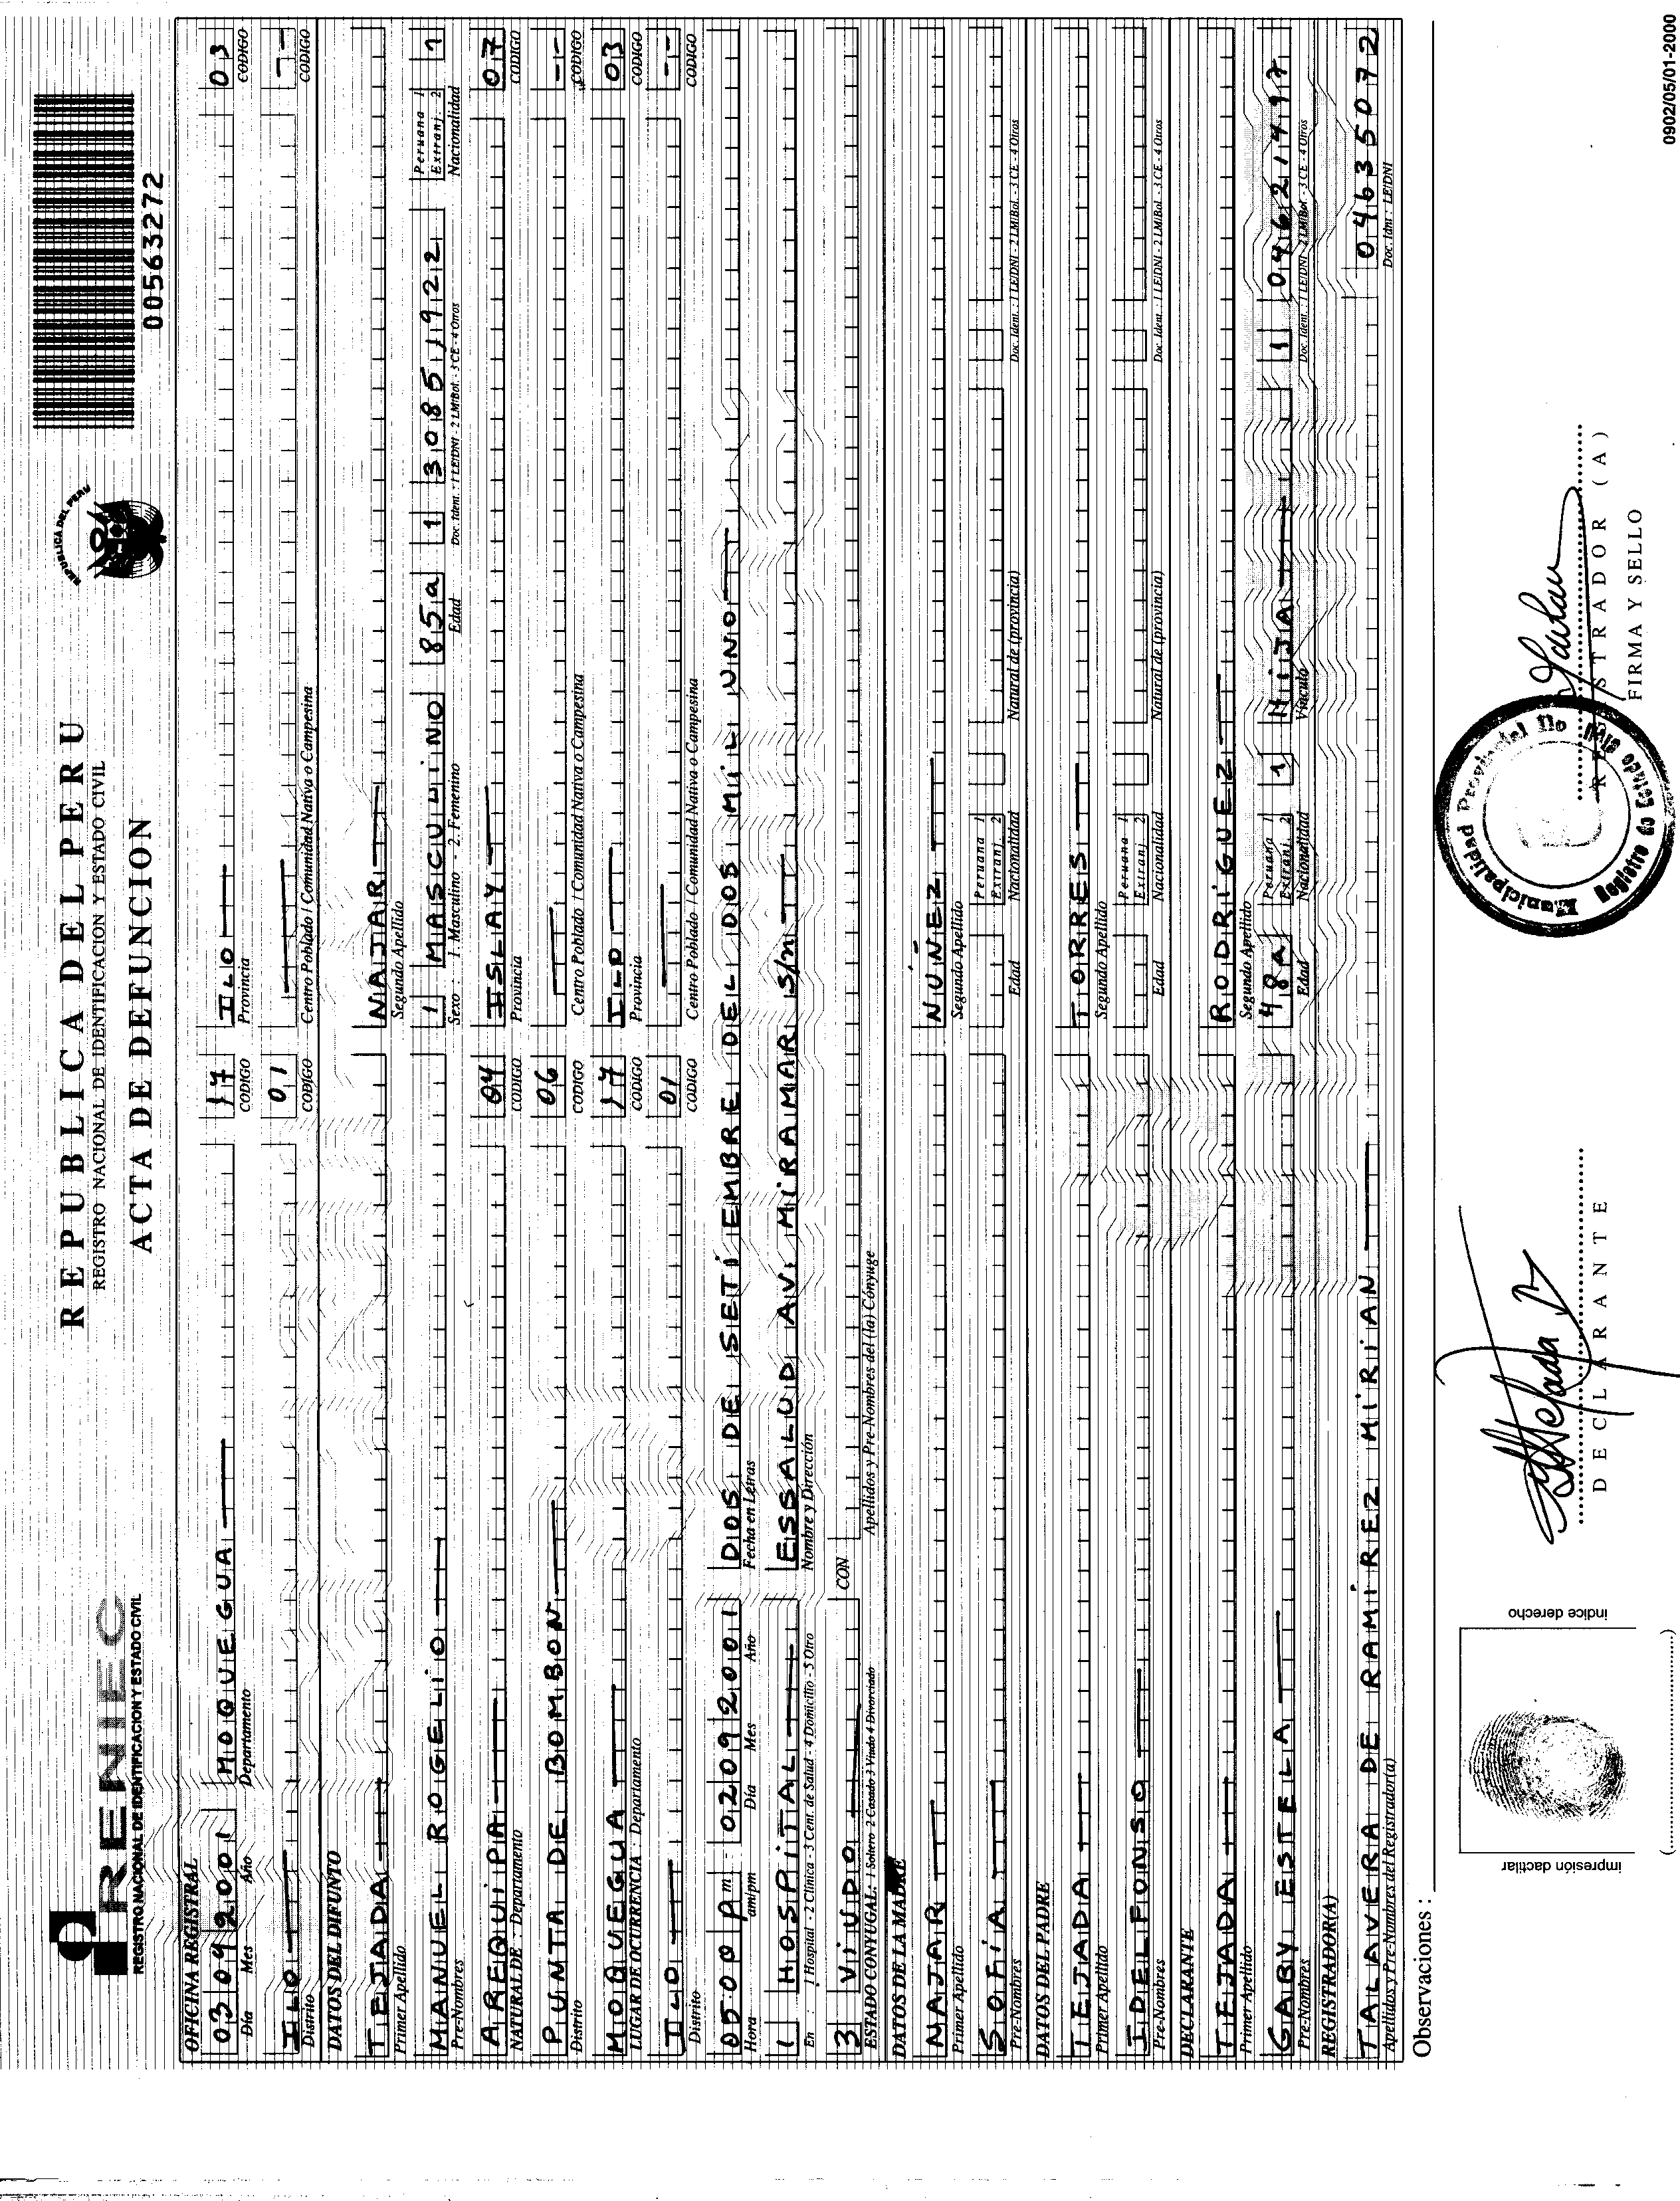 RENIEC
REGISTRO NACIONAL DE IDENTIFICACION Y ESTADO CIVIL
REPUBLICA DEL PERU
REGISTRO NACIONAL DE IDENTIFICACION Y ESTADO CIVIL
ACTA DE DEFUNCION
REPUBLICA DEL PERU
00563272
OFICINA REGISTRAL
03 09 2001 MOQUEGUA 17 ILO 03
Día Mes Año Departamento CODIGO Provincia CODIGO
ILO 01 --
Distrito CODIGO Centro Poblado / Comunidad Nativa o Campesina CODIGO
DATOS DEL DIFUNTO
TEJADA NAJAR
Primer Apellido Segundo Apellido
MANUEL ROGELIO 1 MASCULINO 85a 1 30851922 Peruana 1 Extranj. 2 1
Pre-Nombres Sexo : 1. Masculino - 2. Femenino Edad Doc. Ident. : 1 LE/DNI - 2 LM/Bol. - 3 CE - 4 Otros Nacionalidad
AREQUIPA 04 ISLAY 07
NATURAL DE : Departamento CODIGO Provincia CODIGO
PUNTA DE BOMBON 06 --
Distrito CODIGO Centro Poblado / Comunidad Nativa o Campesina CODIGO
MOQUEGUA 17 ILO 03
LUGAR DE OCURRENCIA : Departamento CODIGO Provincia CODIGO
ILO 01 --
Distrito CODIGO Centro Poblado / Comunidad Nativa o Campesina CODIGO
0500 Pm 02 09 2001 DOS DE SETIEMBRE DEL DOS MIL UNO
Hora am/pm Día Mes Año Fecha en Letras
1 HOSPITAL ESSALUD AV. MIRAMAR S/n
En : 1 Hospital - 2 Clínica - 3 Cent. de Salud - 4 Domicilio - 5 Otro Nombre y Dirección
3 VIUDO CON
ESTADO CONYUGAL : 1 Soltero 2 Casado 3 Viudo 4 Divorciado Apellidos y Pre-Nombres del (la) Cónyuge
DATOS DE LA MADRE
NAJAR NUÑEZ
Primer Apellido Segundo Apellido
SOFIA Peruana 1 Extranj. 2
Pre-Nombres Edad Nacionalidad Natural de (provincia) Doc. Ident. : 1 LE/DNI - 2 LM/Bol. - 3 CE - 4 Otros
DATOS DEL PADRE
TEJADA TORRES
Primer Apellido Segundo Apellido
IDELFONSO Peruana 1 Extranj. 2
Pre-Nombres Edad Nacionalidad Natural de (provincia) Doc. Ident. : 1 LE/DNI - 2 LM/Bol. - 3 CE - 4 Otros
DECLARANTE
TEJADA RODRIGUEZ
Primer Apellido Segundo Apellido
GABY ESTELA 48a Peruana 1 Extranj. 2 1 HIJA 1 04621497
Pre-Nombres Edad Nacionalidad Vínculo Doc. Ident. : 1 LE/DNI - 2 LM/Bol. - 3 CE - 4 Otros
REGISTRADOR(A)
TALAVERA DE RAMIREZ MIRIAN 04635072
Apellidos y Pre-Nombres del Registrador(a) Doc. Idnt : LE/DNI
Observaciones :
impresión dactilar
índice derecho
DECLARANTE
Municipalidad Provincial Ilo
REGISTRADOR (A)
FIRMA Y SELLO
0902/05/01-2000